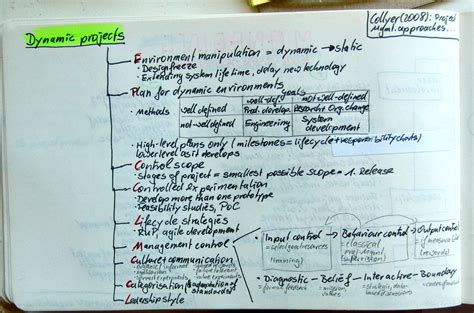 Collyer (2008): Project
Mgmt. approaches...
Dynamic projects
Environment manipulation = dynamic → static
• Design freeze
• Extending system life time, delay new technology
Plan for dynamic environments
goals
well-def. not-well-defined
• Methods well defined Prod. develop. Research+Org.change
not-well defined Engineering System
development
• High-level plans only (milestones = lifecycle + responsibility charts)
lower level as it develops
Control scope
• Stages of project = smallest possible scope = 1. Release
Controlled experimentation
• Develop more than one prototype
• Feasibility studies, PoC
Lifecycle strategies
• RUP, agile development
Management control
• Input control → Behaviour control → Output control
(classical
supervision)
(rewards)
Culture + communication
• Diagnostic – Belief – Interactive – Boundary
feedback
values
Categorisation (adaptation of
standards)
Leadership style